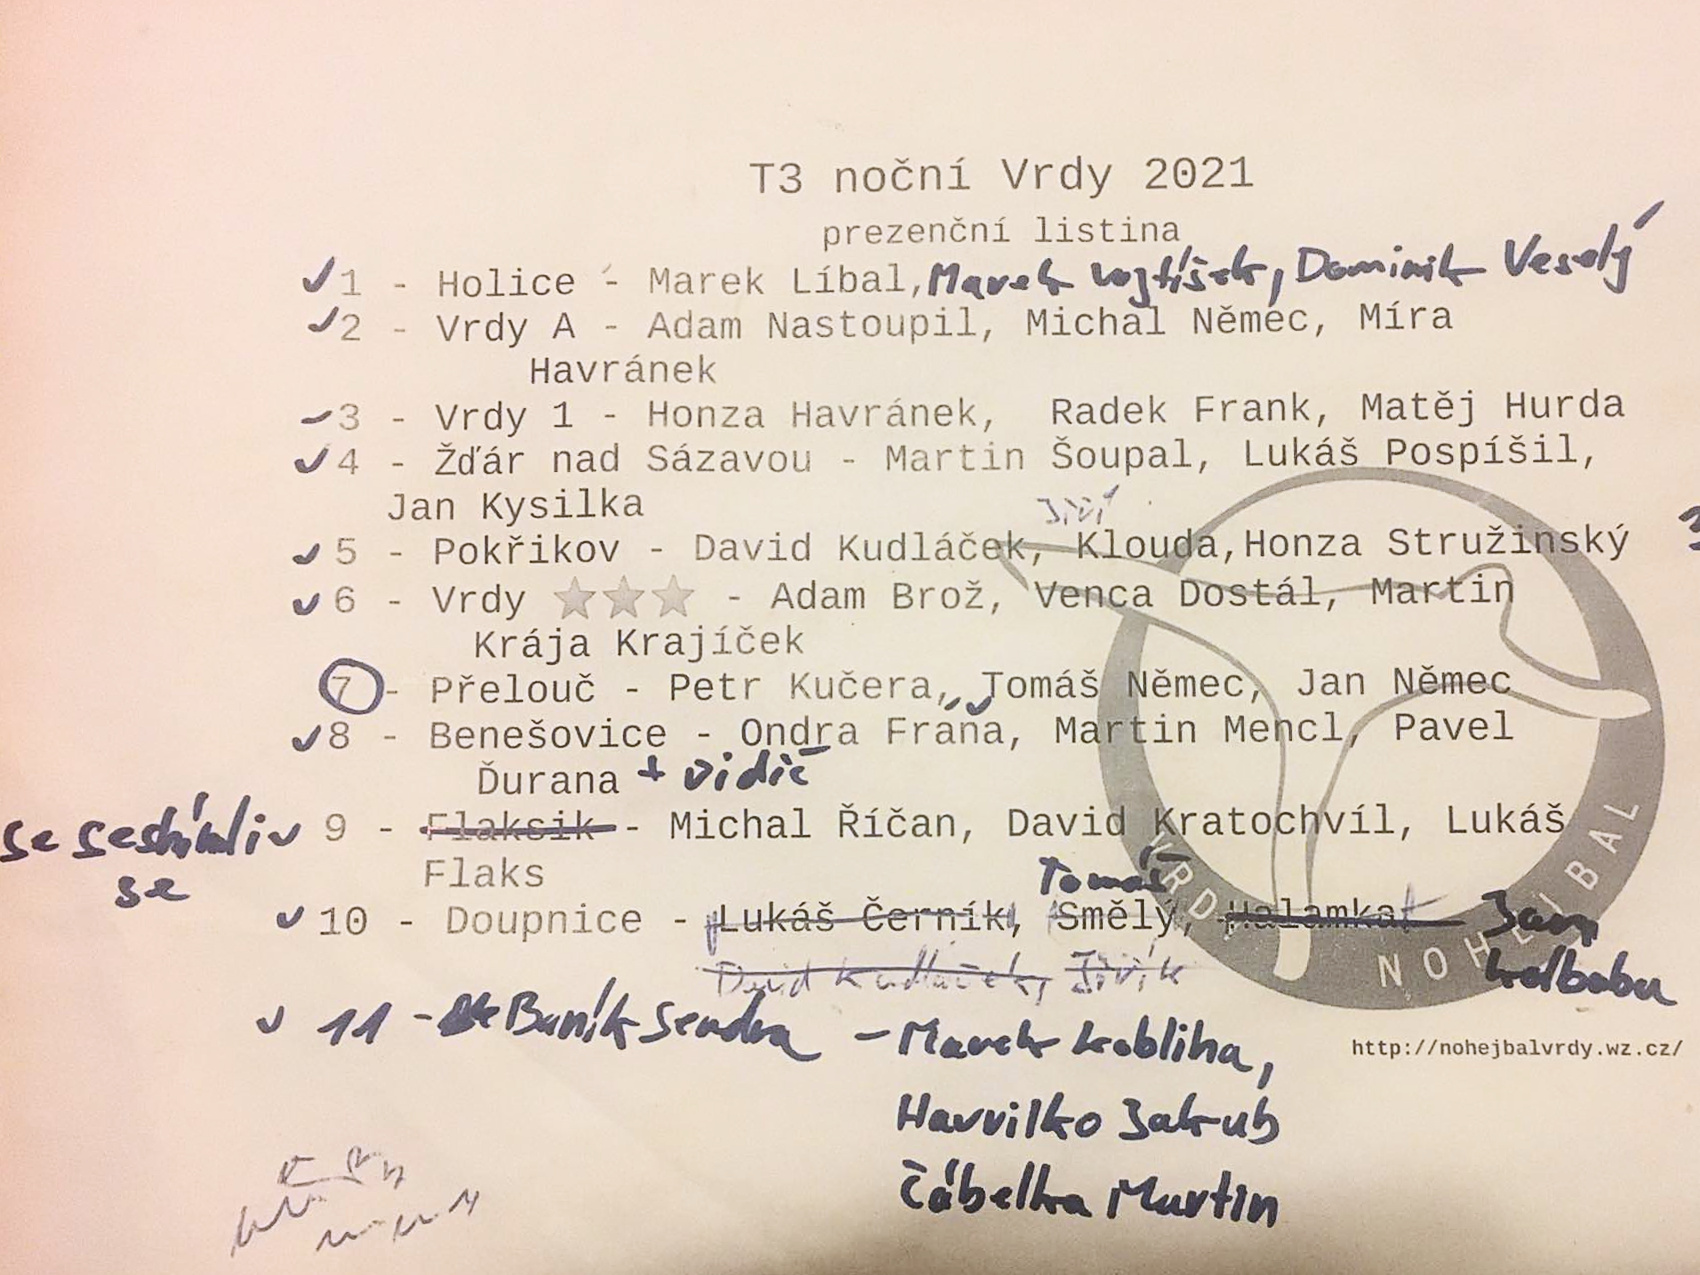 T3 noční Vrdy 2021
prezenční listina
✓1 - Holice - Marek Líbal, Marek Vojtíšek, Dominik Veselý
✓2 - Vrdy A - Adam Nastoupil, Michal Němec, Míra
Havránek
✓3 - Vrdy 1 - Honza Havránek, Radek Frank, Matěj Hurda
✓4 - Žďár nad Sázavou - Martin Šoupal, Lukáš Pospíšil,
Jan Kysilka
Jiří
✓5 - Pokřikov - David Kudláček, Klouda,Honza Stružinský
✓6 - Vrdy ★★★ - Adam Brož, Venca Dostál, Martin
Krája Krajíček
7 - Přelouč - Petr Kučera, Tomáš Němec, Jan Němec
✓8 - Benešovice - Ondra Fráňa, Martin Mencl, Pavel
Ďurana + Vidič
✓ 9 - Flaksik - Michal Říčan, David Kratochvíl, Lukáš
se
Flaks
Tomáš
✓ 10 - Doupnice - Lukáš Černík, Smělý, Halamka Jan
David Kudláček, Jiřík
✓ 11 - Buník Sendra - Marek Kobliha,
Havrilko Jakub
Čábelka Martin
VRDY NOHEJBAL
http://nohejbalvrdy.wz.cz/